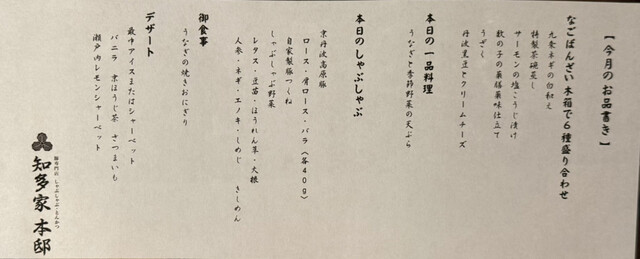 【今月のお品書き】
なごばんざい木箱で6種盛り合わせ
九条ネギの白和え
特製茶碗蒸し
サーモンの塩こうじ漬け
数の子の薬膳薬味仕立て
うざく
丹波黒豆とクリームチーズ
本日の一品料理
うなぎと季節野菜の天ぷら
本日のしゃぶしゃぶ
京丹波高原豚
ロース・肩ロース・バラ(各40g)
自家製豚つくね
しゃぶしゃぶ野菜
レタス・豆苗・ほうれん草・大根
人参・ネギ・エノキ・しめじ きしめん
御食事
うなぎの焼きおにぎり
デザート
最中アイスまたはシャーベット
バニラ 京ほうじ茶 さつまいも
瀬戸内レモンシャーベット
豚専門店 しゃぶしゃぶ・とんかつ
知多家 本邸